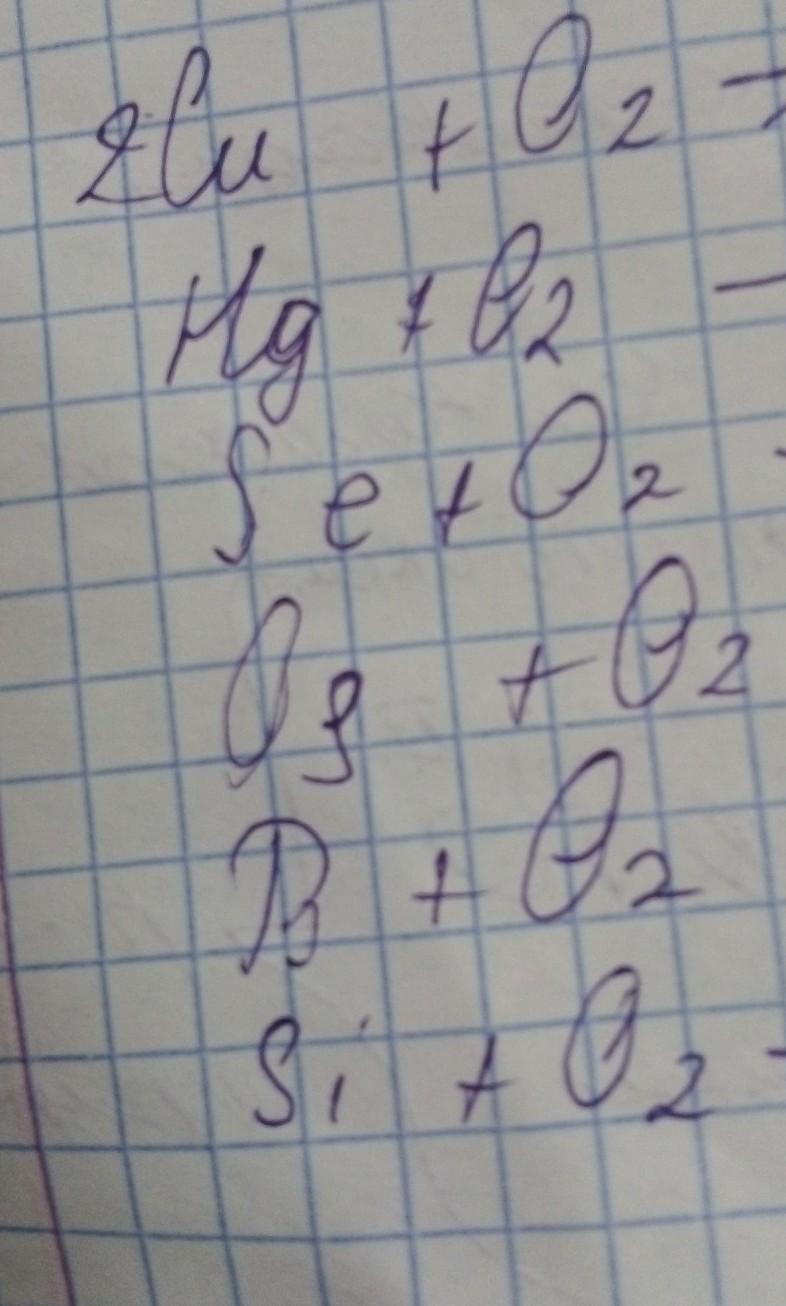 2Cu + O2 →
Hg + O2 —
Se + O2
Os + O2
B + O2
Si + O2 -